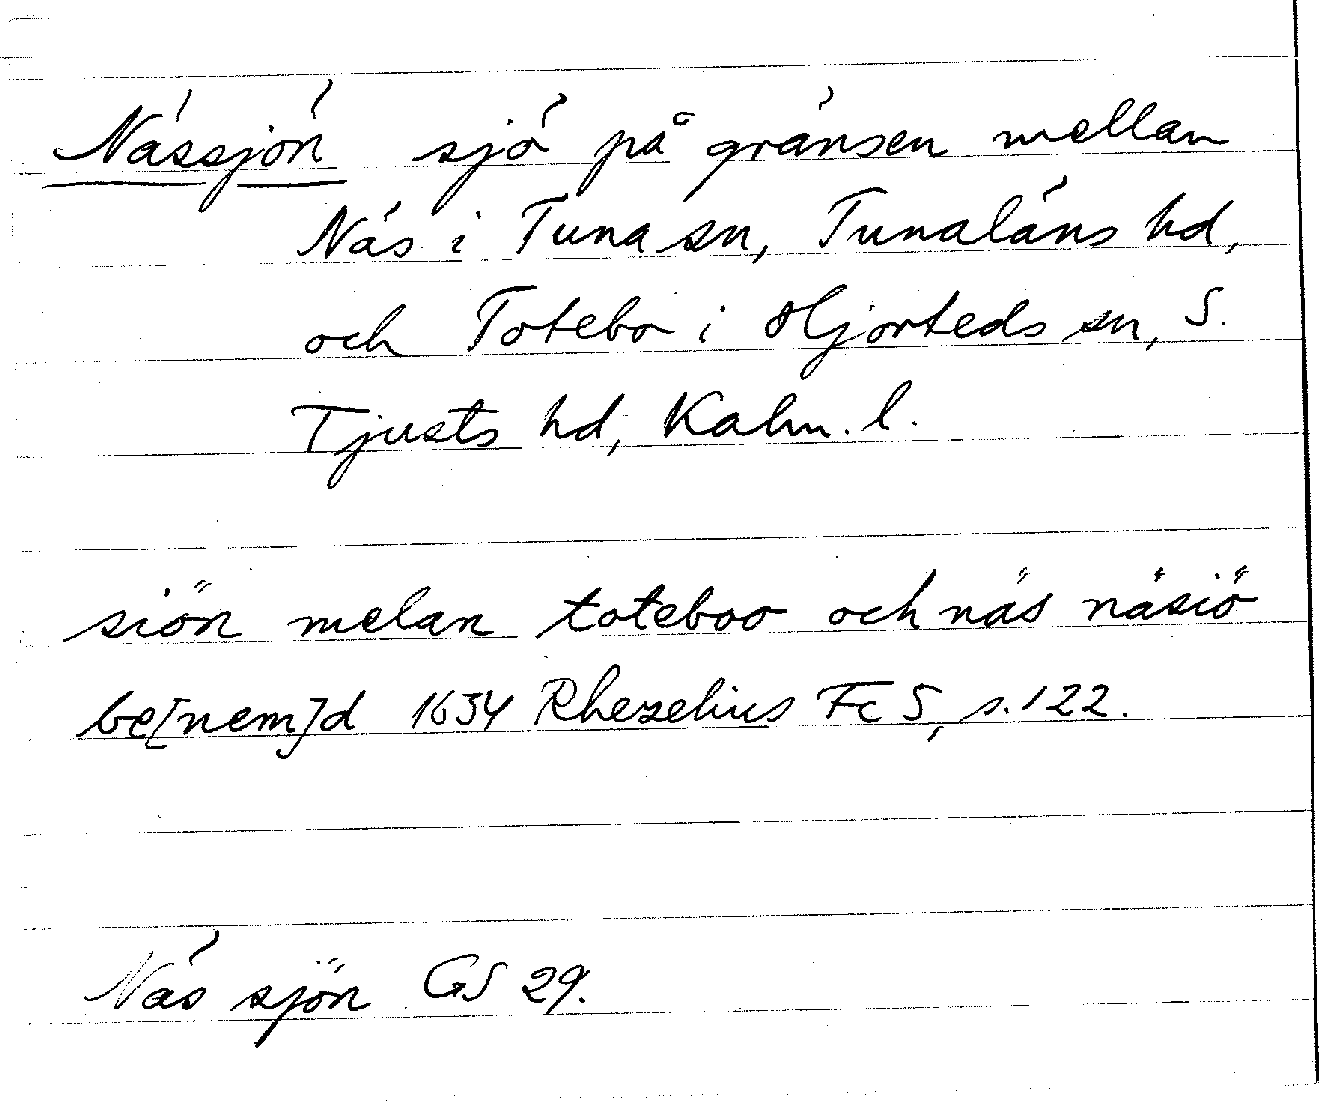 Nässjön sjö på gränsen mellan
Näs i Tuna sn, Tunaläns hd,
och Totebo i Hjorteds sn, S.
Tjusts hd, Kalm. l.
siön melan toteboo och näs näsiö
be[nem]d 1634 Rhezelius Fc 5, s. 122.
Näs sjön GS 29.